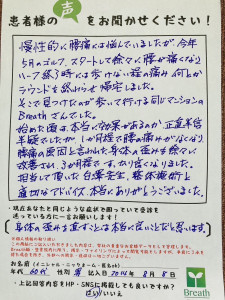 患者様の声をお聞かせください！
慢性的に腰痛には悩んでいましたが、今年
5月のゴルフ、スタートして徐々に腰が痛くなり
ハーフ終了時には歩けない程の痛み 何とか
ラウンドを終わらせ帰宅しました。
そこで見つけたのが歩いて行ける同じマンションの
Breathさんでした。
始めた頃は、本当に効果があるのか正直半信
半疑でしたが、1か月程で腰の痛みがなくなり
腰痛の原因と言われた身体の歪みを徐々に
改善され、3か月程ですっかり良くなりました。
担当して頂いた
適切なアドバイス、本当にありがとうございました。
・現在あなたと同じような症状で困っていて受診を
迷っている方に一言お願いします！
身体の歪みを直すことは本当に良いことだと思います
お名前（イニシャル・ニックネーム・匿名OK）
年代 60代 性別 男 記入日 2014年 8月 8日
・上記内容をHP・SNSに掲載しても良いですか？
Breath